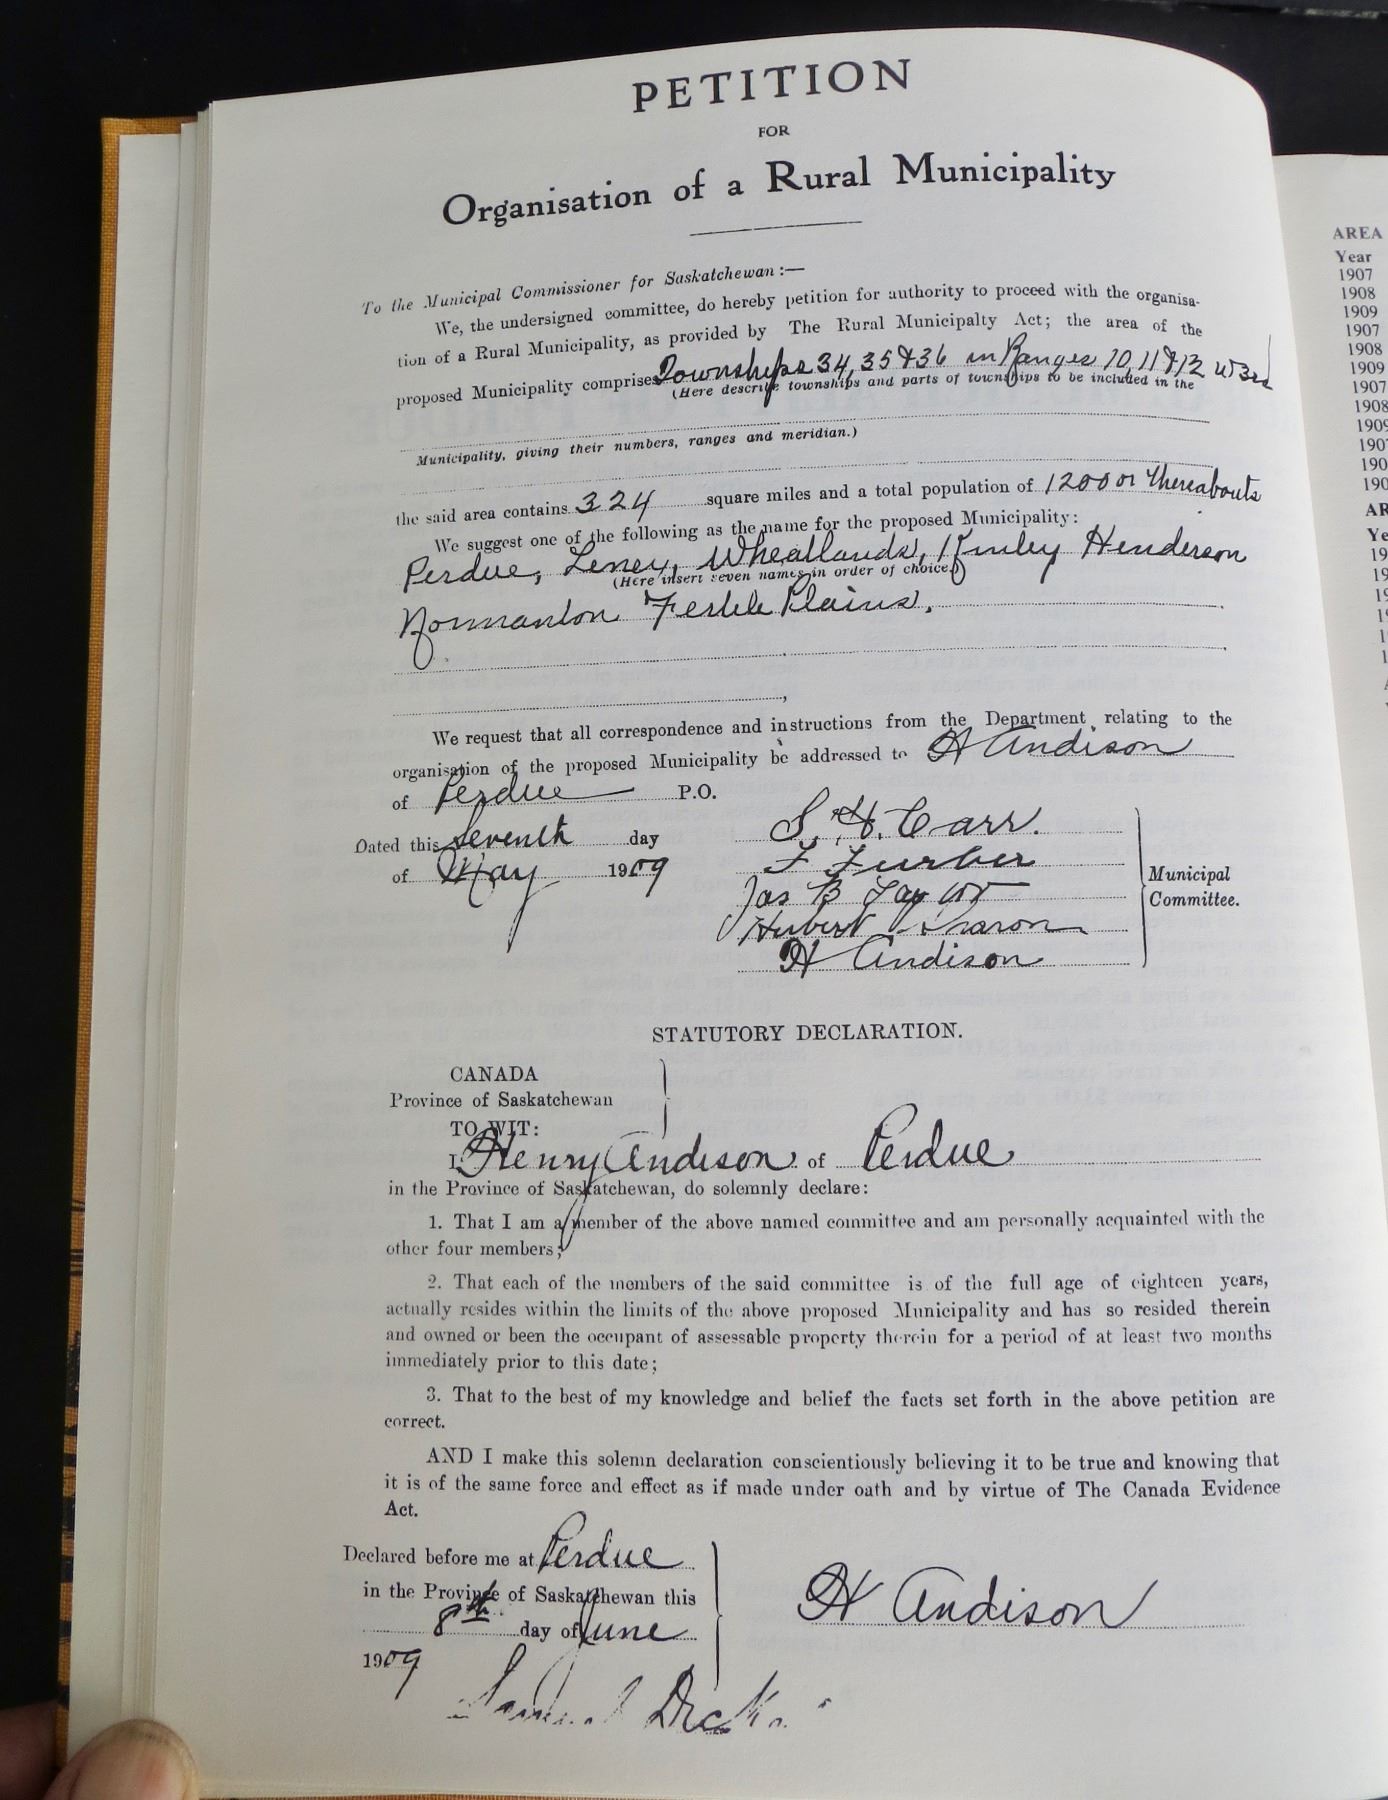 PETITION
FOR
Organisation of a Rural Municipality
To the Municipal Commissioner for Saskatchewan :—
We, the undersigned committee, do hereby petition for authority to proceed with the organisa-
tion of a Rural Municipality, as provided by The Rural Municipalty Act; the area of the
proposed Municipality comprises Townships 34, 35 & 36 in Ranges 10, 11 & 12 W 3rd
(Here describe townships and parts of townships to be included in the
Municipality, giving their numbers, ranges and meridian.)
the said area contains 324 square miles and a total population of 1200 or thereabouts
We suggest one of the following as the name for the proposed Municipality:
Perdue, Leney, Wheatlands, Kinley Henderson
(Here insert seven names in order of choice.)
Normanton Fertile Plains.
We request that all correspondence and instructions from the Department relating to the
organisation of the proposed Municipality be addressed to H Andison
of Perdue P.O.
Dated this Seventh day
of May 1909
S. H. Carr.
F Furber
Jas B Taylor
Hubert Sharon
H Andison
Municipal
Committee.
STATUTORY DECLARATION.
CANADA
Province of Saskatchewan
TO WIT:
I, Henry Andison of Perdue
in the Province of Saskatchewan, do solemnly declare:
1. That I am a member of the above named committee and am personally acquainted with the
other four members;
2. That each of the members of the said committee is of the full age of eighteen years,
actually resides within the limits of the above proposed Municipality and has so resided therein
and owned or been the occupant of assessable property therein for a period of at least two months
immediately prior to this date;
3. That to the best of my knowledge and belief the facts set forth in the above petition are
correct.
AND I make this solemn declaration conscientiously believing it to be true and knowing that
it is of the same force and effect as if made under oath and by virtue of The Canada Evidence
Act.
Declared before me at Perdue
in the Province of Saskatchewan this
8th day of June
1909
H Andison
Samuel
AREA
Year
1907
1908
1909
1907
1908
1909
1907
1908
1909